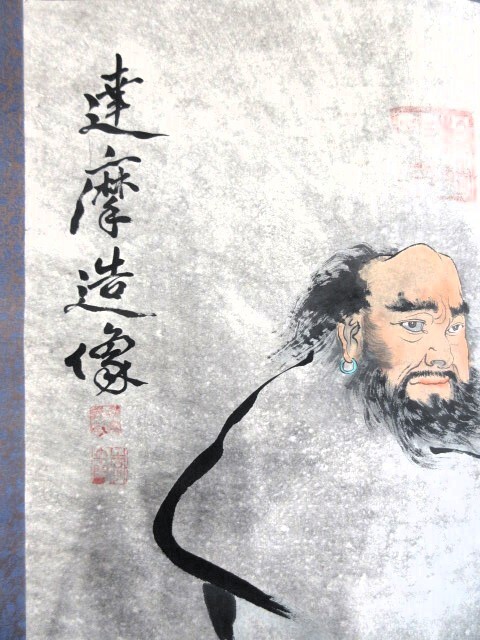 達摩造像